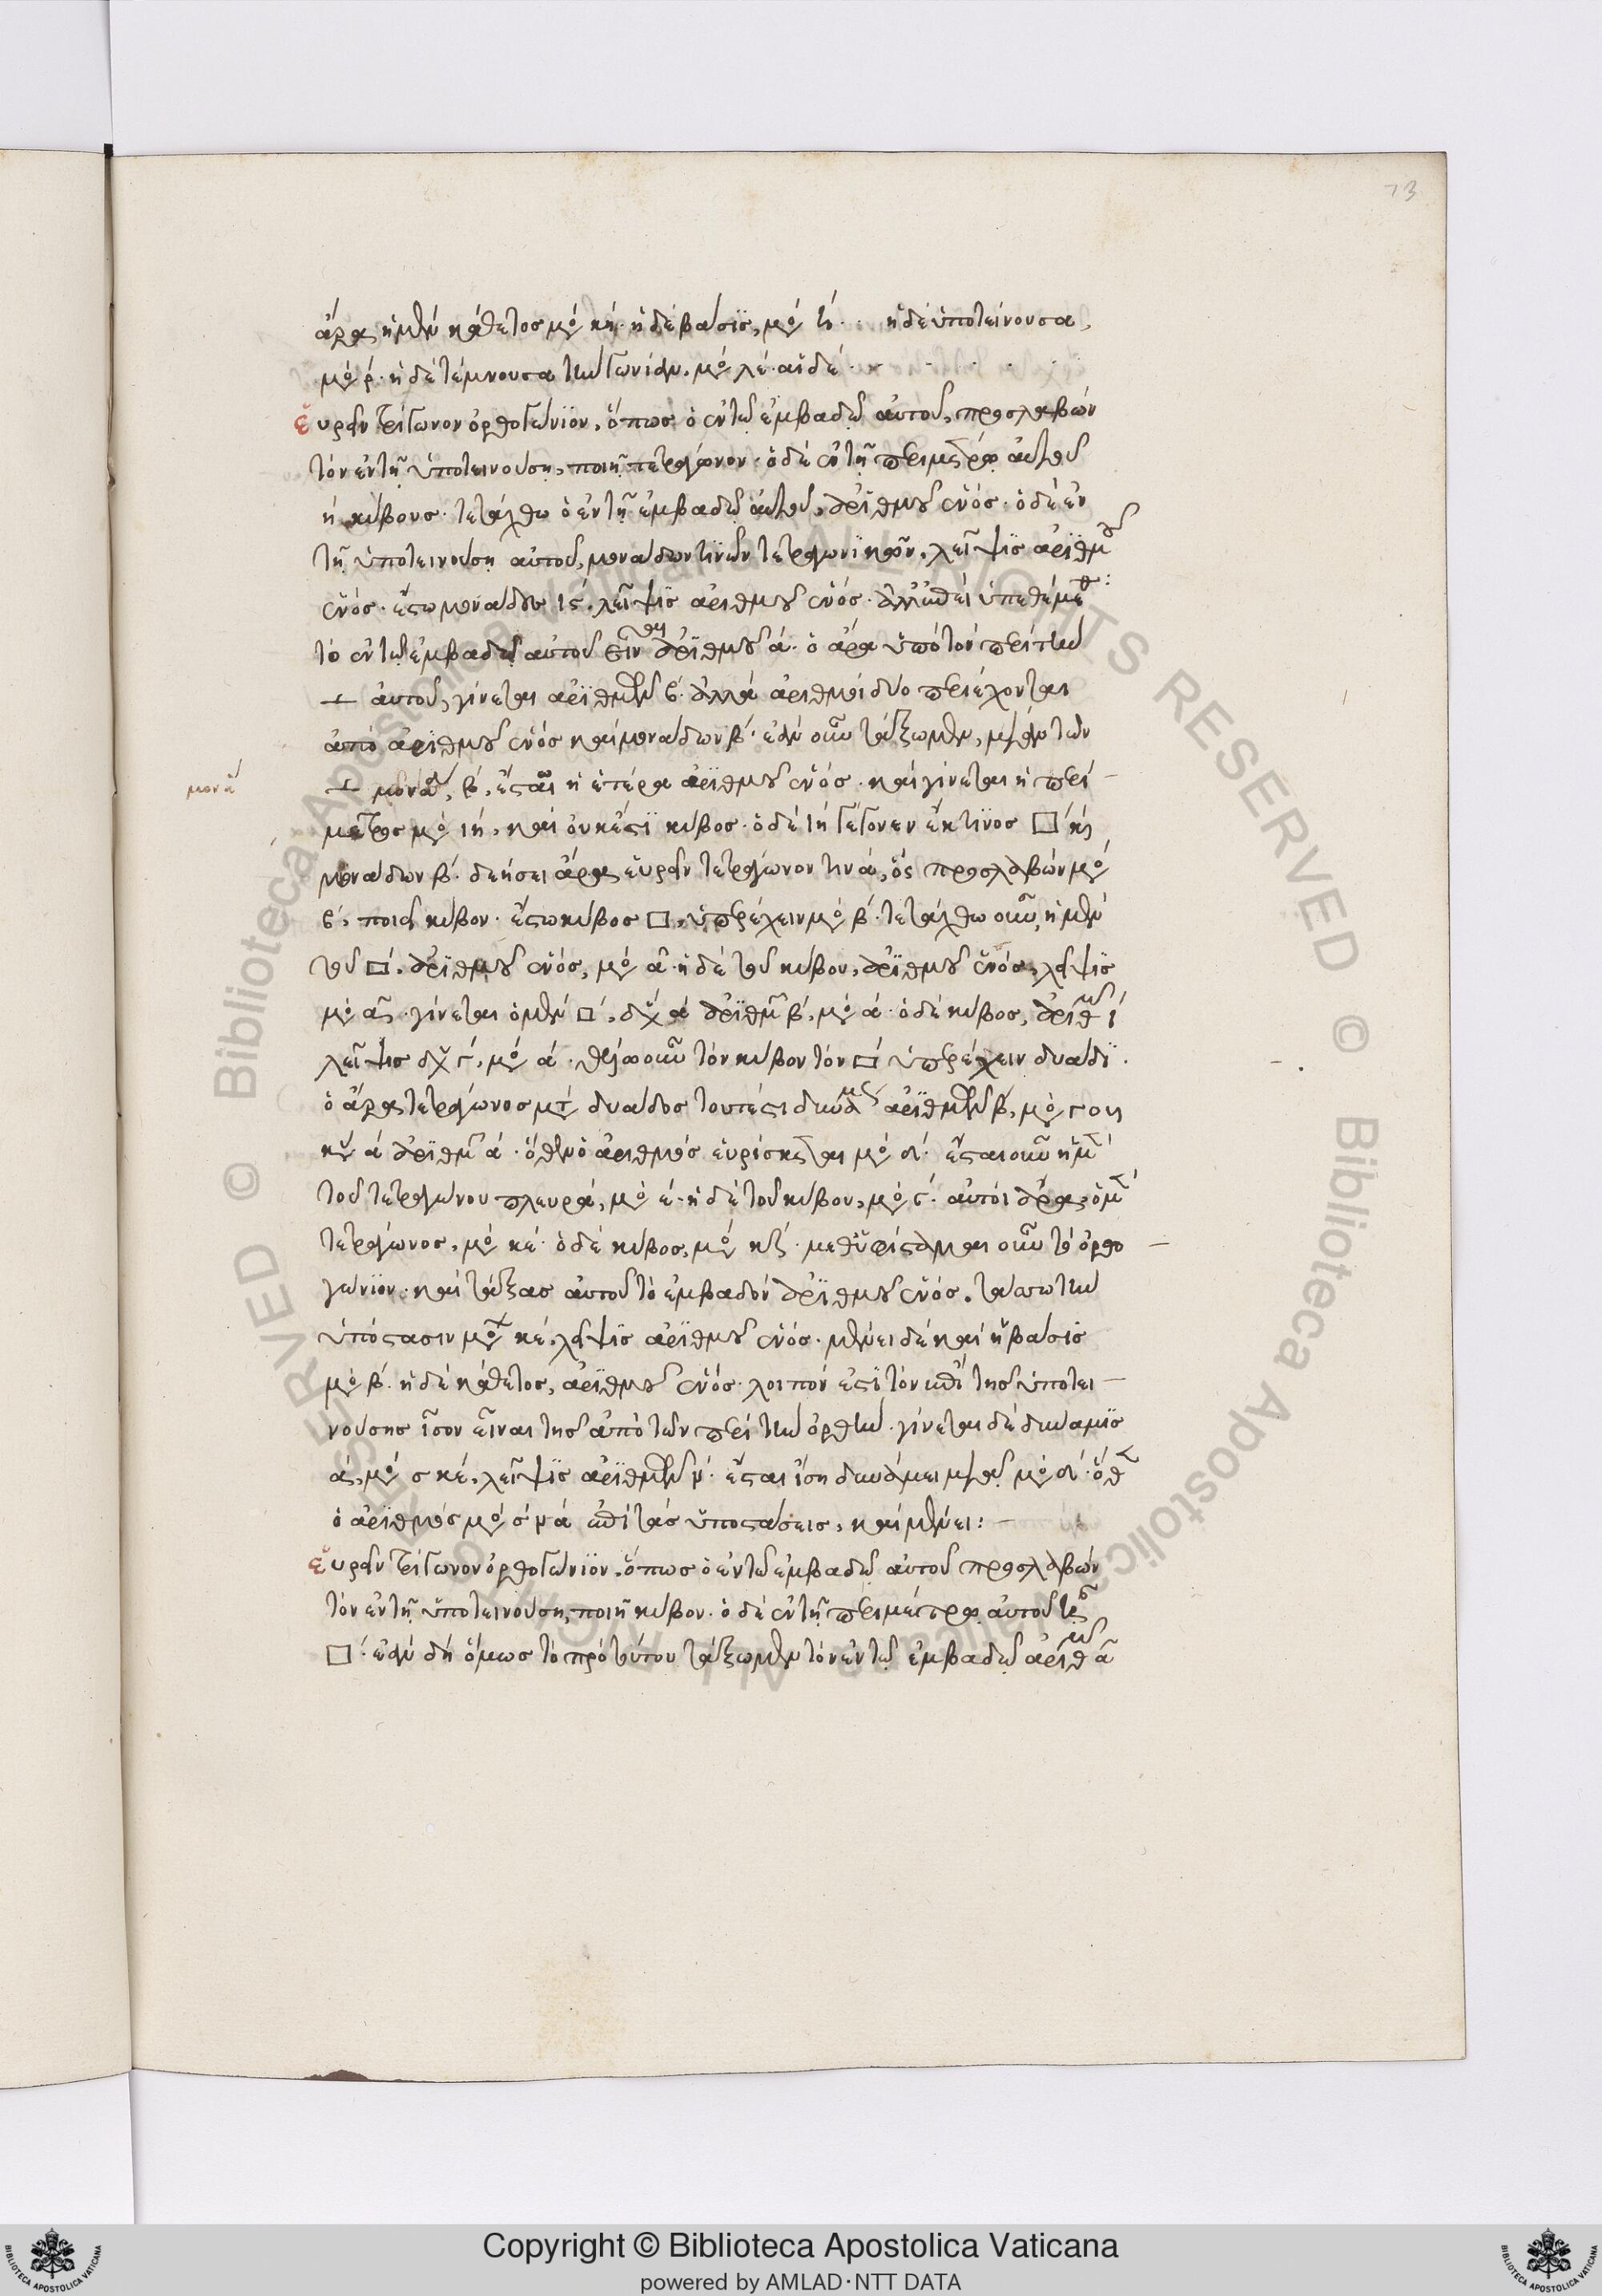 73
ἄρα ἡ μὲν κάθετος μὸ κή· ἡ δὲ βάσις, μὸ · ἡ δὲ ὑποτείνουσα,
μὸ ρ· ἡ δὲ τέμνουσα τὴν γωνίαν, μὸ λέ· αἱ δὲ
εὑρεῖν τρίγωνον ὀρθογώνιον, ὅπως ὁ ἐν τῷ ἐμβαδῷ αὐτοῦ, προσλαβὼν
τὸν ἐν τῇ ὑποτεινούσῃ, ποιῇ τετράγωνον· ὁ δὲ ἐν τῇ περιμέτρῳ αὐτοῦ
ἠ κύβους· τετάχθω ὁ ἐν τῇ ἐμβαδῷ αὐτοῦ, ἀριθμοῦ ἑνός· ὁ δὲ ἐν
τῇ ὑποτεινούσῃ αὐτοῦ, μονάδων τινῶν τετραγωνικῶν, λεῖψις ἀριθμοῦ
ἑνός· ἔστω μονάδων ις· λεῖψις ἀριθμοῦ ἑνός· ἀλλ' ἐπεὶ ὑπεθέμεθα
τὸ ἐν τῷ ἐμβαδῷ αὐτοῦ εἶναι ἀριθμοῦ ά· ὁ ἄρα ὑπὸ τὸν περὶ τὴν
⊥ αὐτοῦ, γίνεται ἀριθμῶν β· ἀλλὰ ἀριθμοὶ δύο περιέχονται
ἀπὸ ἀριθμοῦ ἑνὸς καὶ μονάδων β· ἐὰν οὖν τάξωμεν, μίαν τῶν
μονά
⊥ μονά, β, ἔσται ἡ ἑτέρα ἀριθμοῦ ἑνός· καὶ γίνεται ἡ περί-
μετρος μὸ ιή, καὶ οὐκ ἔστι κύβος· ὁ δὲ ιή γέγονεν ἔκ τινος □ κὶ
μονάδων β· δεήσει ἄρα εὑρεῖν τετράγωνον τινά, ὃς προσλαβὼν μὸ
β, ποιεῖ κύβον· ἔστω κύβος □, ὑπερέχειν μὸ β· τετάχθω οὖν ἡ μὲν
τοῦ □, ἀριθμοῦ ἑνός, μὸ ά· ἡ δὲ τοῦ κύβου, ἀριθμοῦ ἑνός, λεῖψις
μὸ ά· γίνεται ὁ μὲν □, δυ ά ἀριθμ β, μὸ ά· ὁ δὲ κύβος, ἀριθμ
λεῖψις δυ γ, μὸ ά· θέλω οὖν τὸν κύβον τὸν □ ὑπερέχειν δυάδι·
ὁ ἄρα τετράγωνος μτ δυάδος τουτέστι δυνάμς ἀριθμῶν β, μὸ γ
κυ ά ἀριθμ ά· ὅθεν ὁ ἀριθμὸς εὑρίσκεται μὸ δ· ἔσται οὖν ἡ μ
τοῦ τετραγώνου πλευρά, μὸ έ· ἡ δὲ τοῦ κύβου, μὸ γ· αὐτοὶ ἄρα, ὁ μ
τετράγωνος, μὸ κέ· ὁ δὲ κύβος, μὸ κζ· μεθυφίσταμαι οὖν τὸ ὀρθο-
γώνιον· καὶ τάξας αὐτοῦ τὸ ἐμβαδὸν ἀριθμοῦ ἑνός· τάσσω τὴν
ὑπόστασιν μὸ κέ, λεῖψις ἀριθμοῦ ἑνός· μένει δὲ καὶ ἡ βάσις
μὸ β· ἡ δὲ κάθετος, ἀριθμοῦ ἑνός· λοιπόν ἐστι τὸν ἀπὸ τῆς ὑποτει-
νούσης ἴσον εἶναι τῆς ἀπὸ τῶν περὶ τὴν ὀρθήν· γίνεται δὲ δύναμις
ά, μὸ σ κέ, λεῖψις ἀριθμῶν ν· ἔσται ἴση δυνάμει μιᾷ μὸ δ· ὅθ
ὁ ἀριθμὸς μὸ ά ἐπὶ τὰς ὑποστάσεις, καὶ μένει:-
εὑρεῖν τρίγωνον ὀρθογώνιον, ὅπως ὁ ἐν τῷ ἐμβαδῷ αὐτοῦ προσλαβὼν
τὸν ἐν τῇ ὑποτεινούσῃ, ποιῇ κύβον· ὁ δὲ ἐν τῇ περιμέτρῳ αὐτοῦ
□· ἐὰν δὴ ὁμοίως τὸ πρὸ τούτου τάξωμεν τὸν ἐν τῷ ἐμβαδῷ ἀριθ ά
Copyright © Biblioteca Apostolica Vaticana
powered by AMLAD·NTT DATA